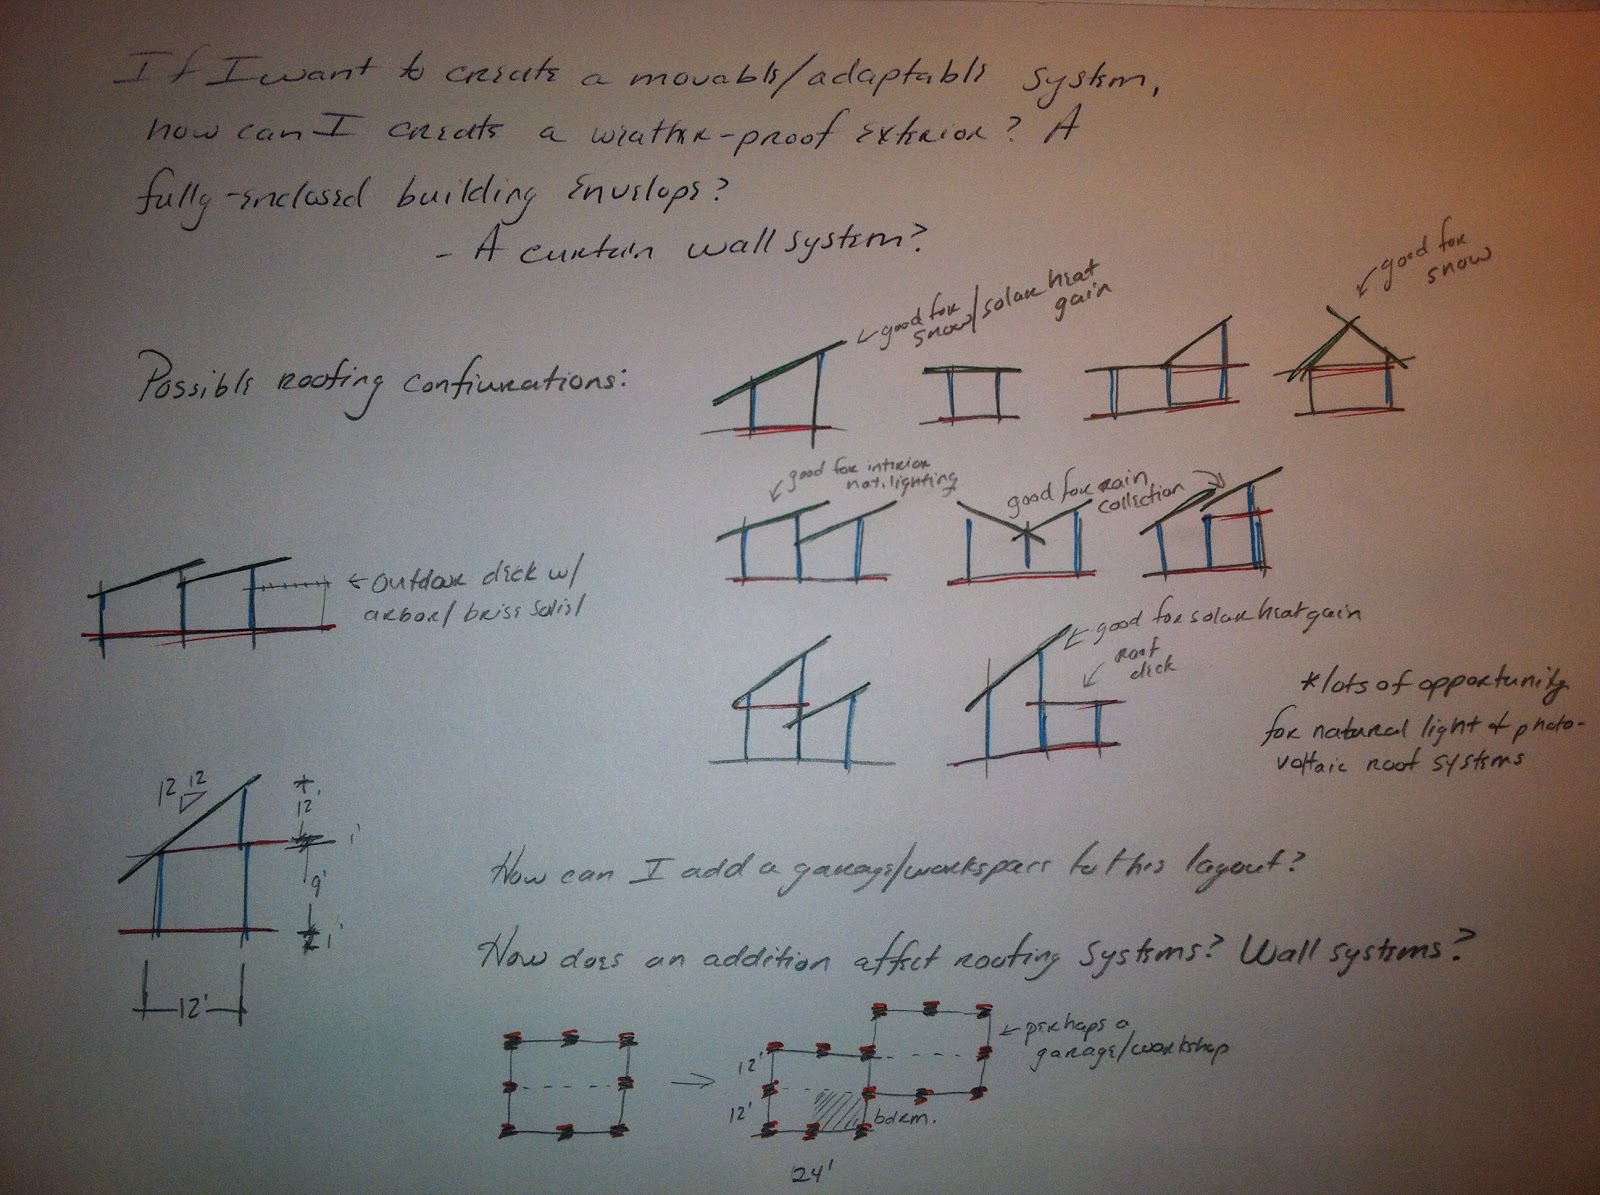 If I want to create a movable/adaptable system,
how can I create a weather-proof exterior? A
fully-enclosed building envelope?
- A curtain wall system?
good for
snow/solar heat
gain
good for
snow
Possible roofing confiurations:
good for interior
nat. lighting
good for rain
collection
outdoor deck w/
arbor/ brise solis/
good for solar heat gain
roof
deck
*lots of opportunity
for natural light & photo-
voltaic roof systems
12 12
12'
1'
9'
1'
12'
How can I add a garage/workspace to this layout?
How does an addition affect roofing systems? Wall systems?
perhaps a
garage/workshop
12'
12'
bdrm.
24'